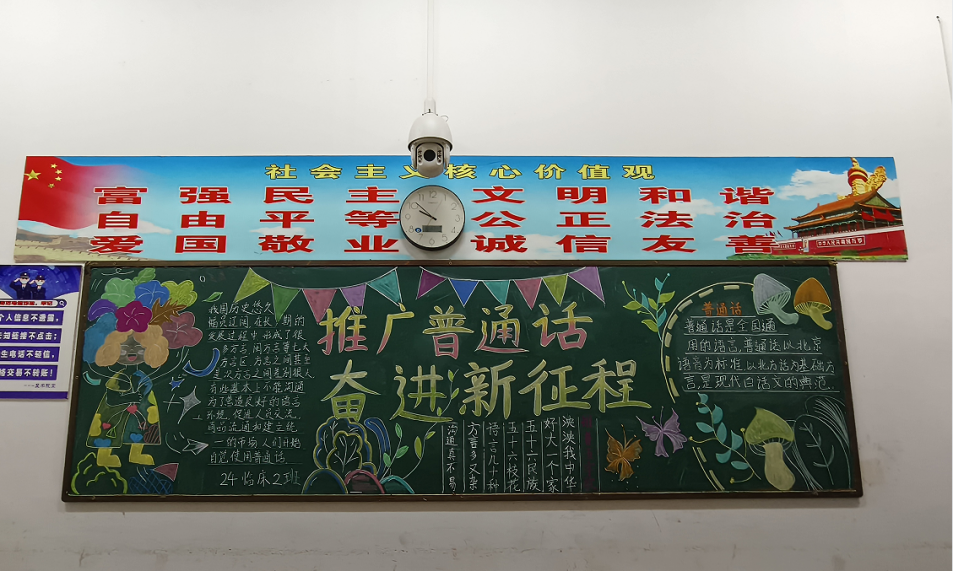 社会主义核心价值观
富强 民主 文明 和谐
自由 平等 公正 法治
爱国 敬业 诚信 友善
中华人民共和国万岁
个人信息不泄漏,
未知链接不点击;
生电话不轻信,
络交易不转账!
我国历史悠久
幅员辽阔,在长期的
发展过程中形成了很
多方言,因为三等七大
方言区方言之间甚至
是次方言之间差别很人
有些基本上不能沟通
为了营造良好的语言
环境,促进人员交流,
商品流通和建立统
一的市场,人们开始
自觉使用普通话
24临床2班
推广普通话
奋进新征程
泱泱我中华
好大一个家
五十六民族
五十六枝花
语言几十种
方言多又杂
沟通真不易
普通话
普通话是全国通
用的语言,普通话以北京
语音为标准,以北方话为基础方
言,是现代白话文的典范.